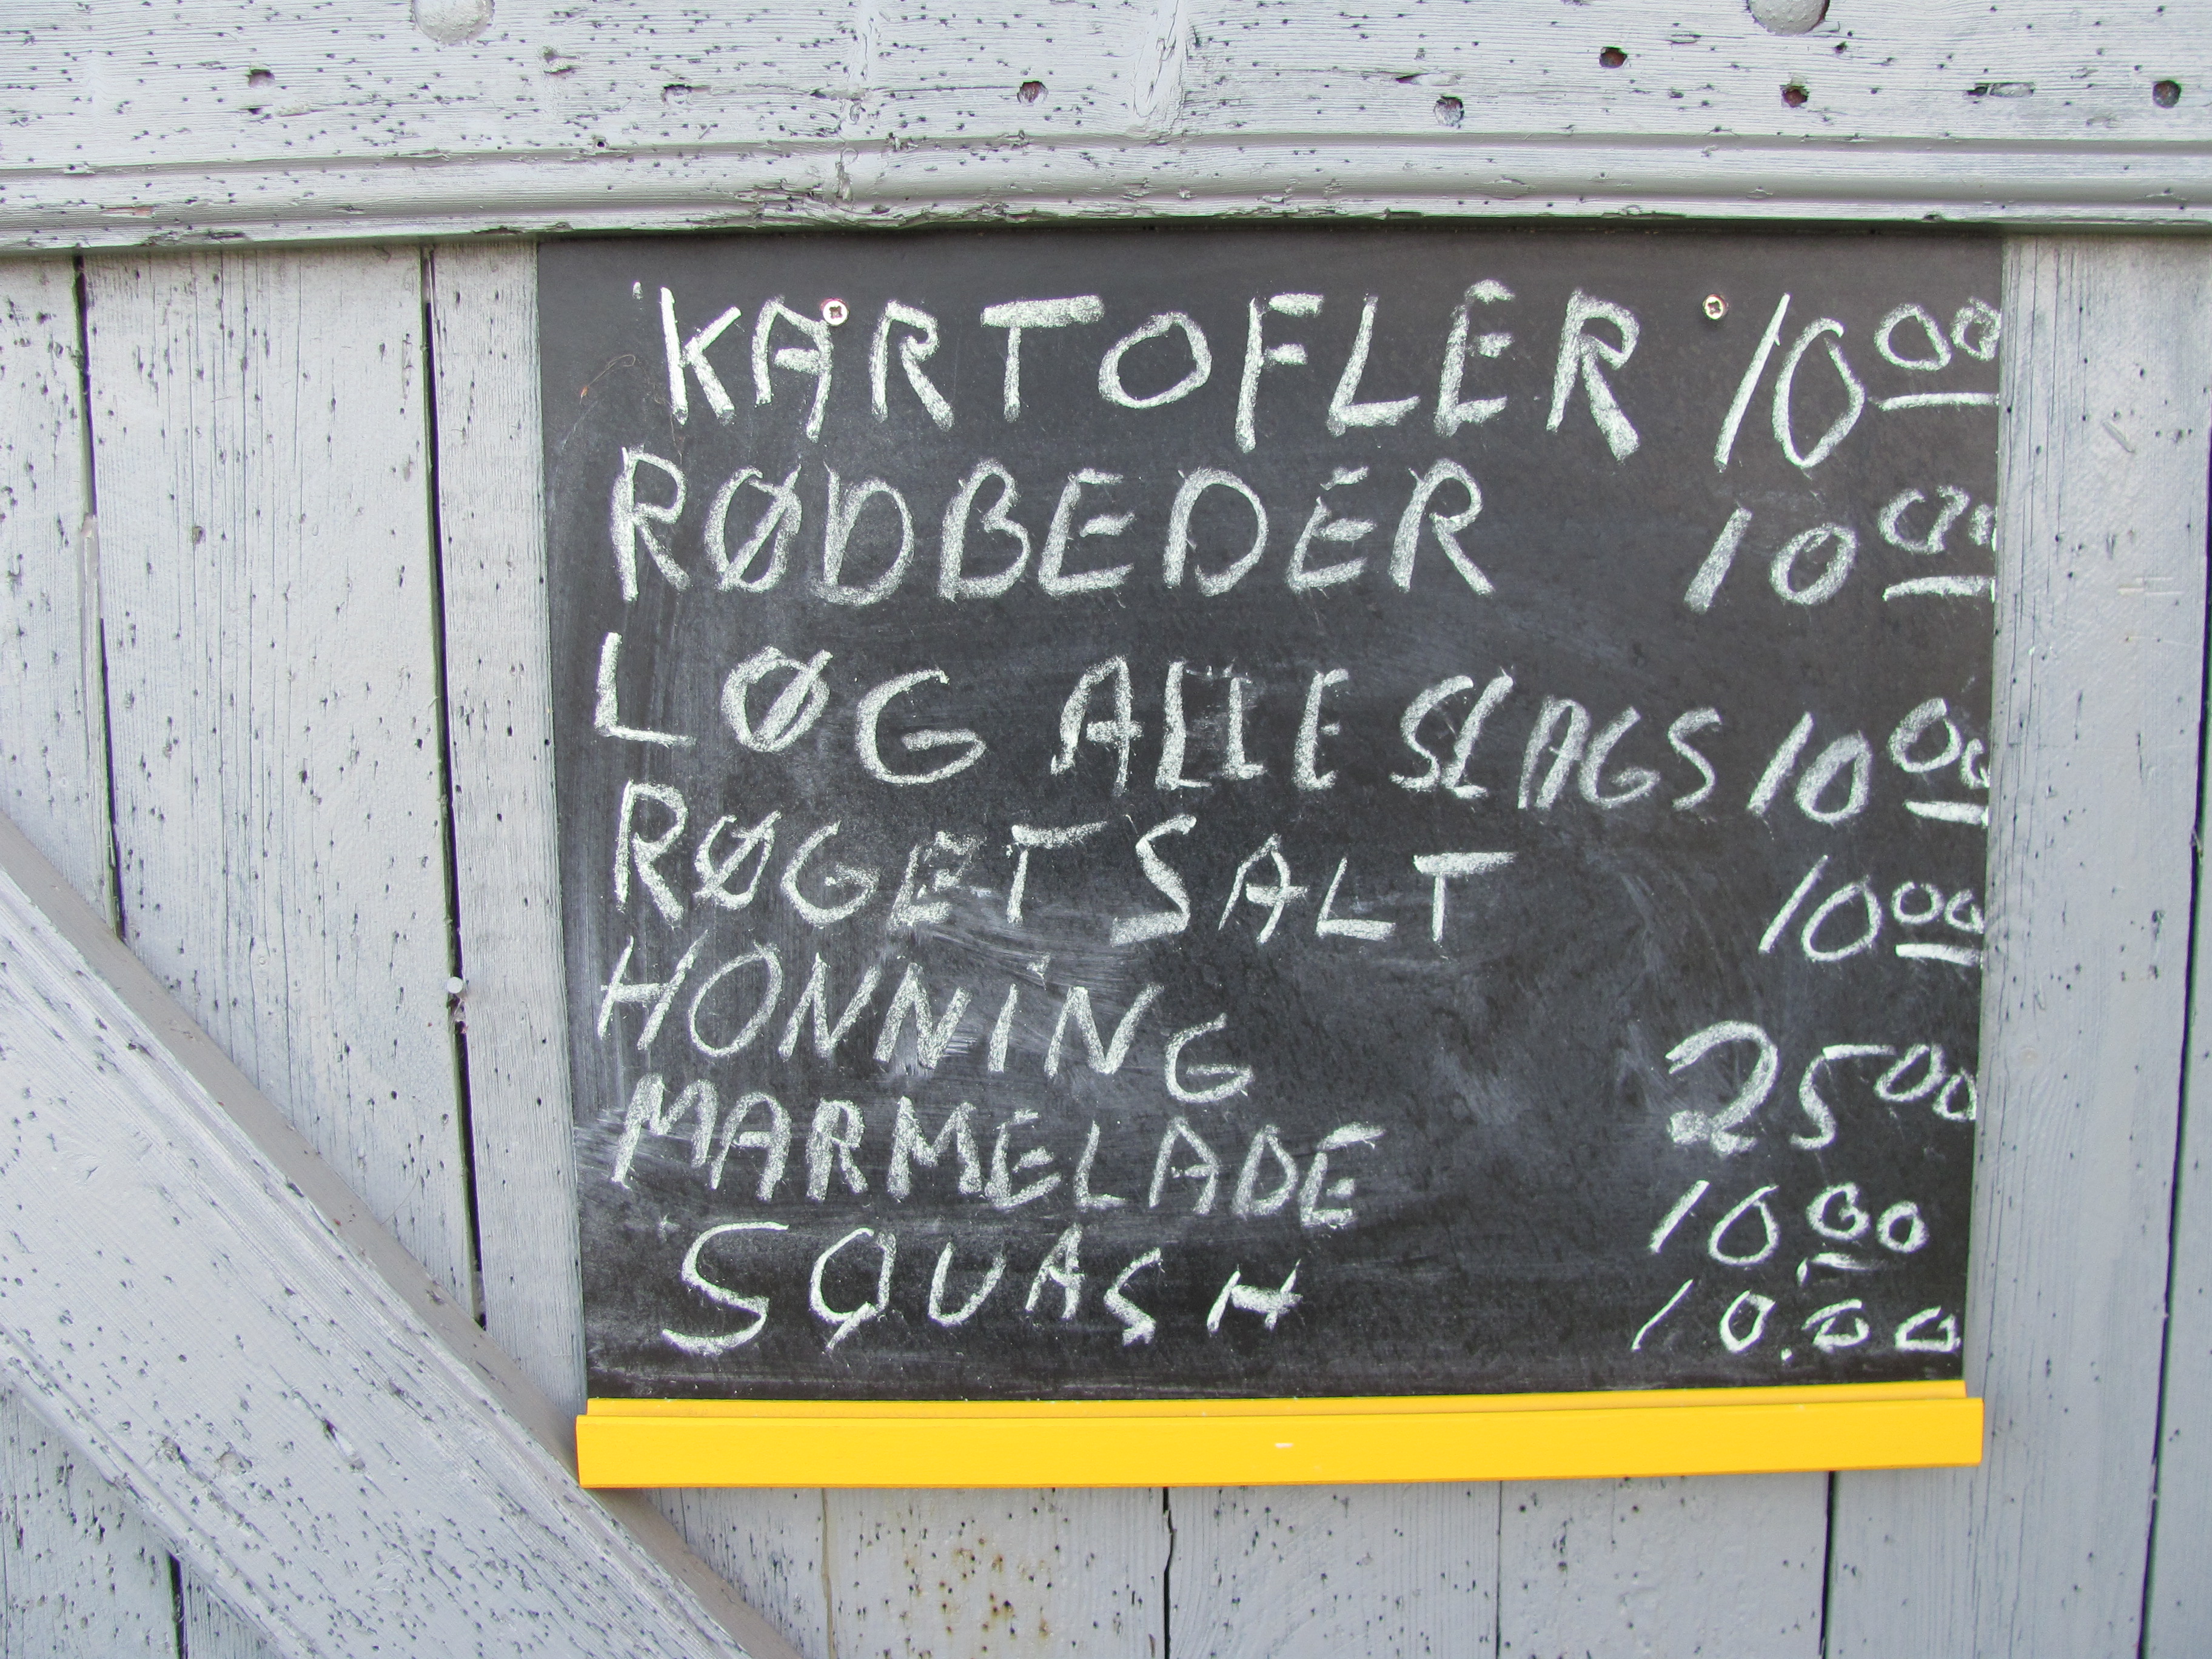 KARTOFLER 10 00
RØDBEDER 10 00
LØG ALLE SLAGS 10 00
RØGET SALT 10 00
HONNING 25 00
MARMELADE 10 00
SQUASH 10.00